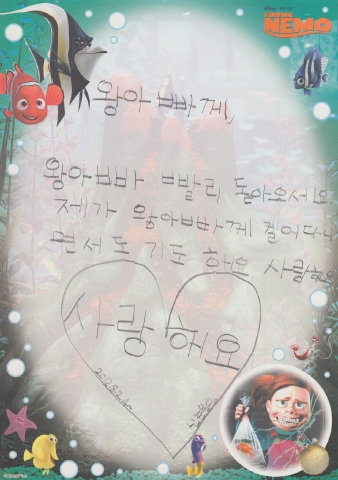 Disney · PIXAR
FINDING
NEMO
왕아빠께,
왕아빠빠 빨리 돌아오세요
제가 왕아빠빠께 걸어다니
면서도 기도 해요. 사랑해요
사랑해요